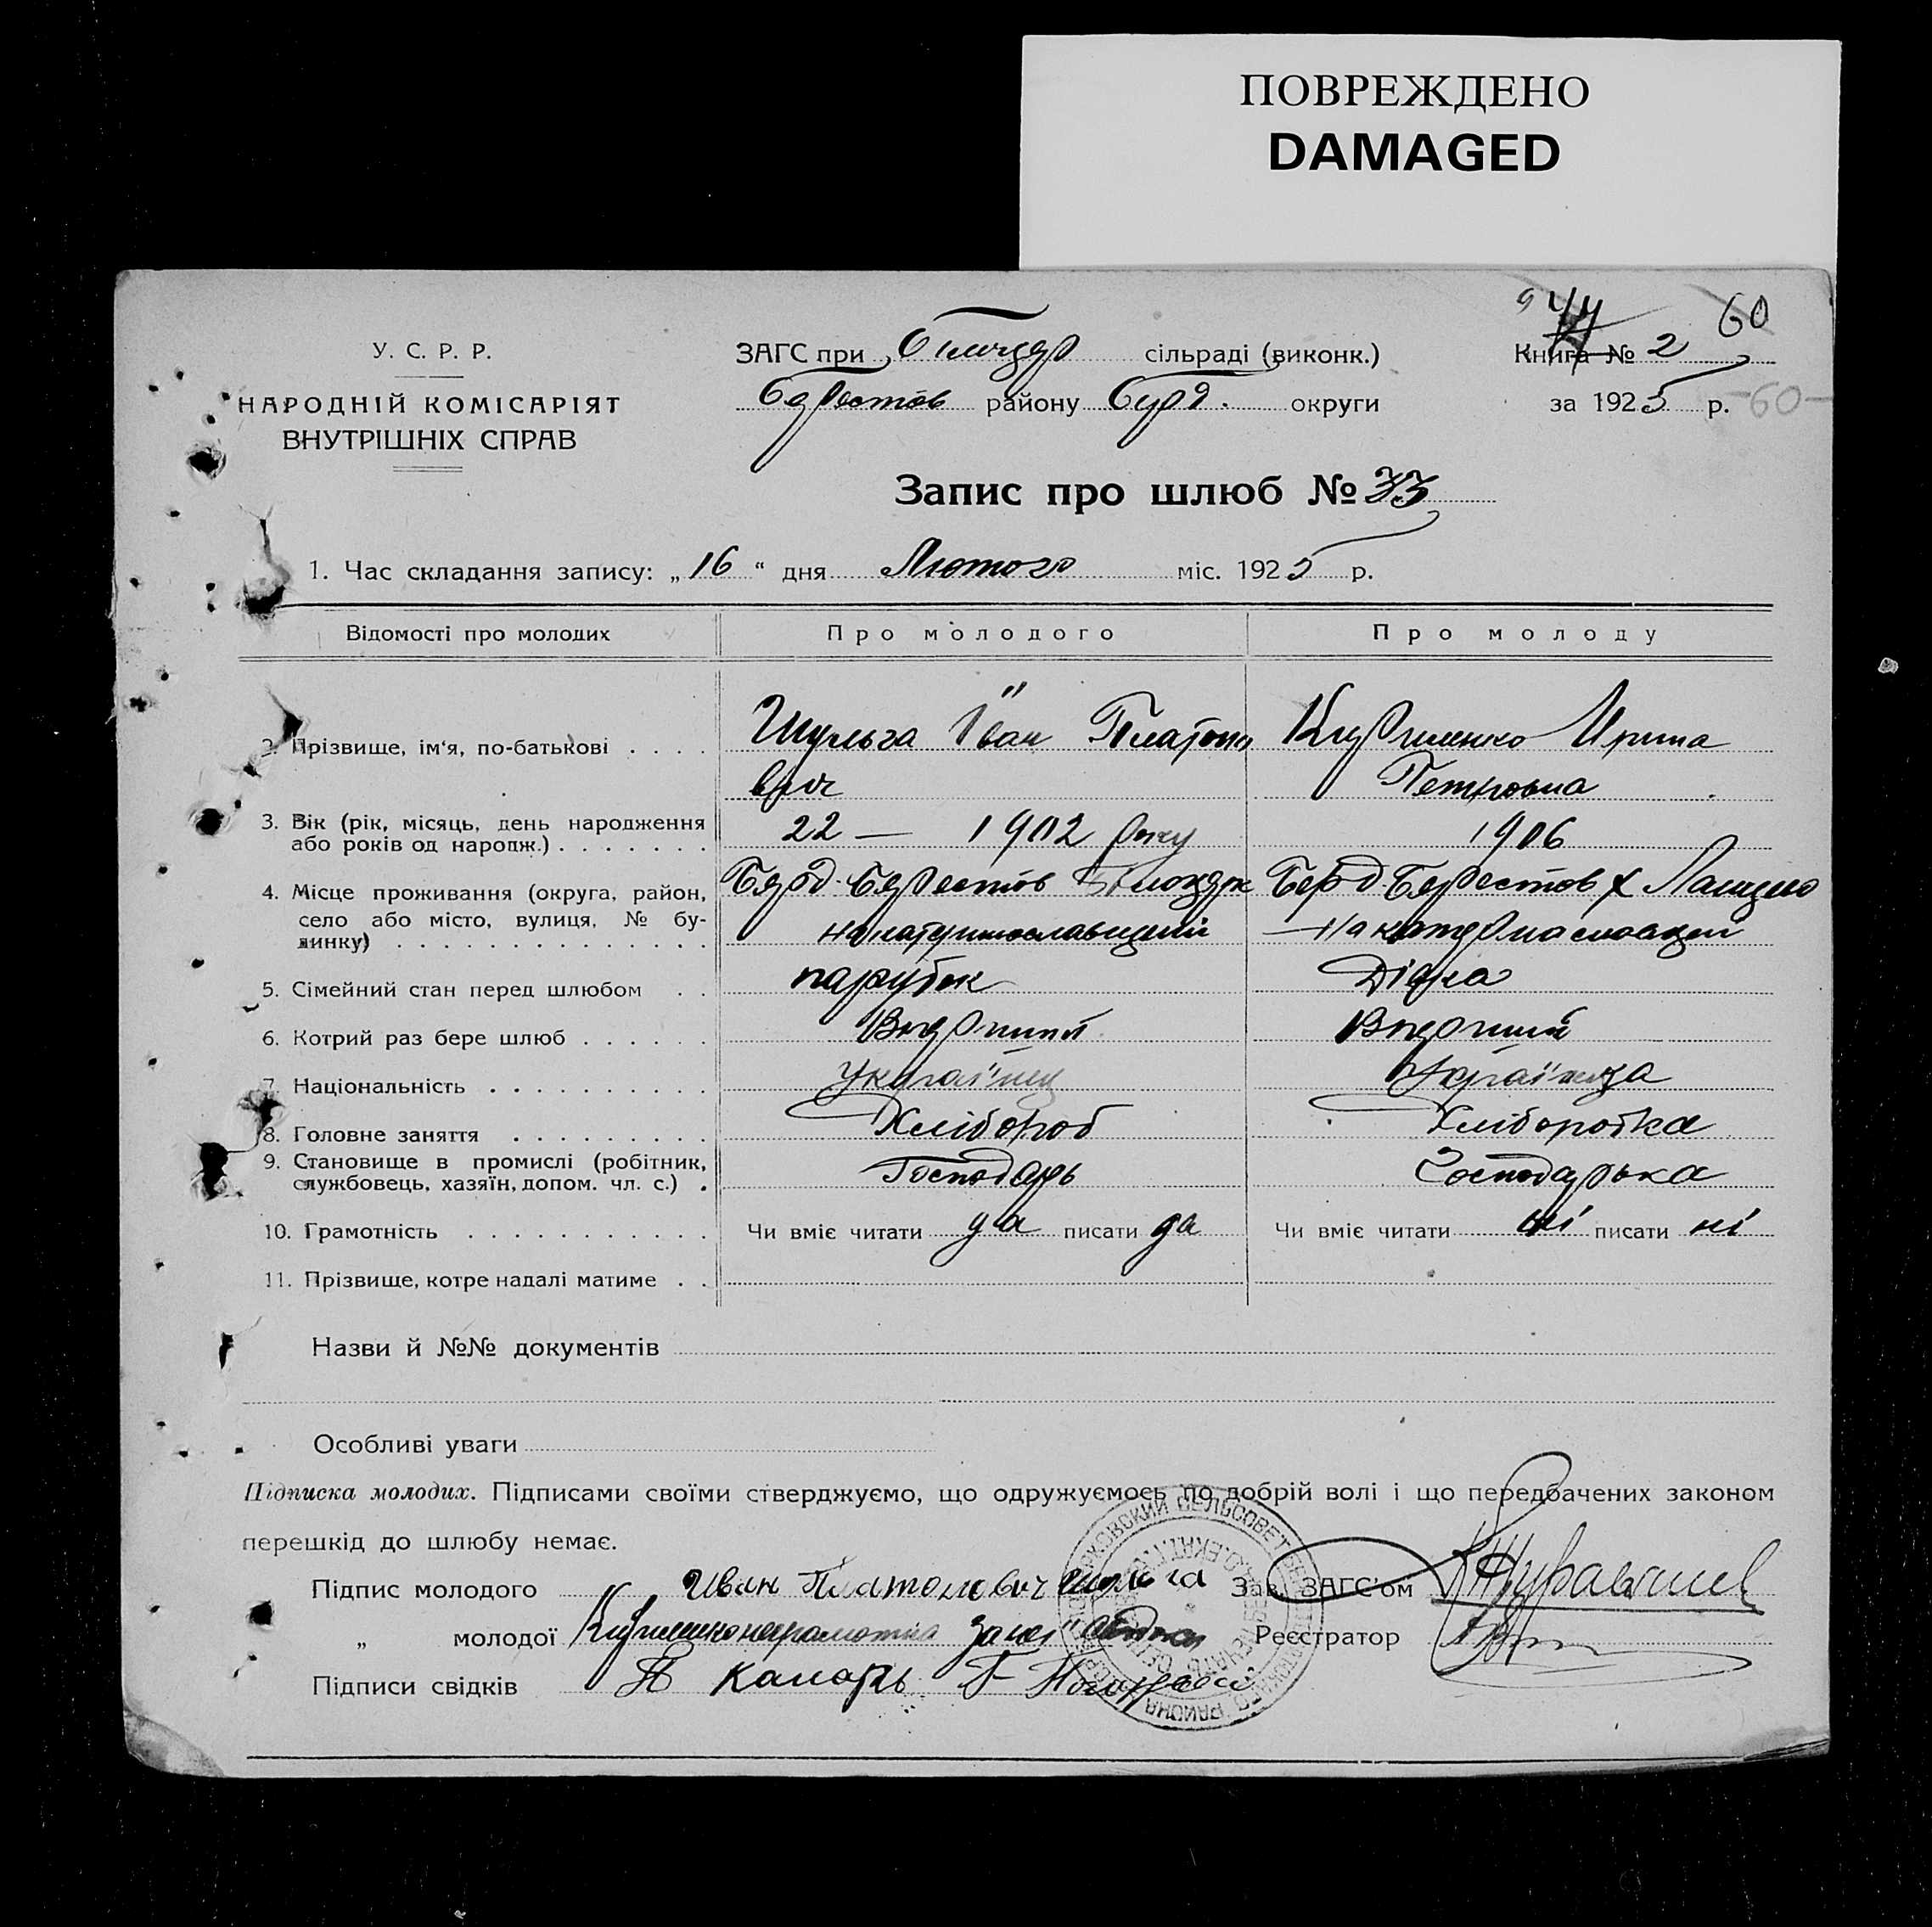 ПОВРЕЖДЕНО
DAMAGED
У. С. Р. Р.
НАРОДНІЙ КОМІСАРІЯТ
ВНУТРІШНІХ СПРАВ
ЗАГС при сільраді (виконк.)
району округи
Книга № 2
60
за 1925 р. -60-
Запис про шлюб № 33
1. Час складання запису: „16“ дня Лютого міс. 1925 р.
Відомості про молодих
Про молодого
Про молоду
2. Прізвище, ім‘я, по-батькові . . . .
Шульга Іван Платоно
вич
Ирина
Петровна
3. Вік (рік, місяць, день народження
або років од народж.) . . . . . . .
22 — 1902 року
1906
4. Місце проживання (округа, район,
село або місто, вулиця, № бу-
динку) . . . . . . . . . . . . . .
Берд. Берестов
Берд. Берестов х
5. Сімейний стан перед шлюбом . .
парубок
Дівка
6. Котрий раз бере шлюб . . . . . .
Вперший
Вперший
7. Національність . . . . . . . . . .
Українка
8. Головне заняття . . . . . . . . .
Хлібороб
Хліборобка
9. Становище в промислі (робітник,
службовець, хазяїн, допом. чл. с.) .
Господарь
Господарька
10. Грамотність . . . . . . . . . . .
Чи вміє читати да писати да
Чи вміє читати ні писати ні
11. Прізвище, котре надалі матиме . .
Назви й №№ документів
Особливі уваги
Підписка молодих. Підписами своїми стверджуємо, що одружуємось по добрій волі і що передбачених законом
перешкід до шлюбу немає.
Підпис молодого Иван Платонович Шульга
Зав. ЗАГС‘ом
„ молодої неграмотна
Реєстратор
Підписи свідків